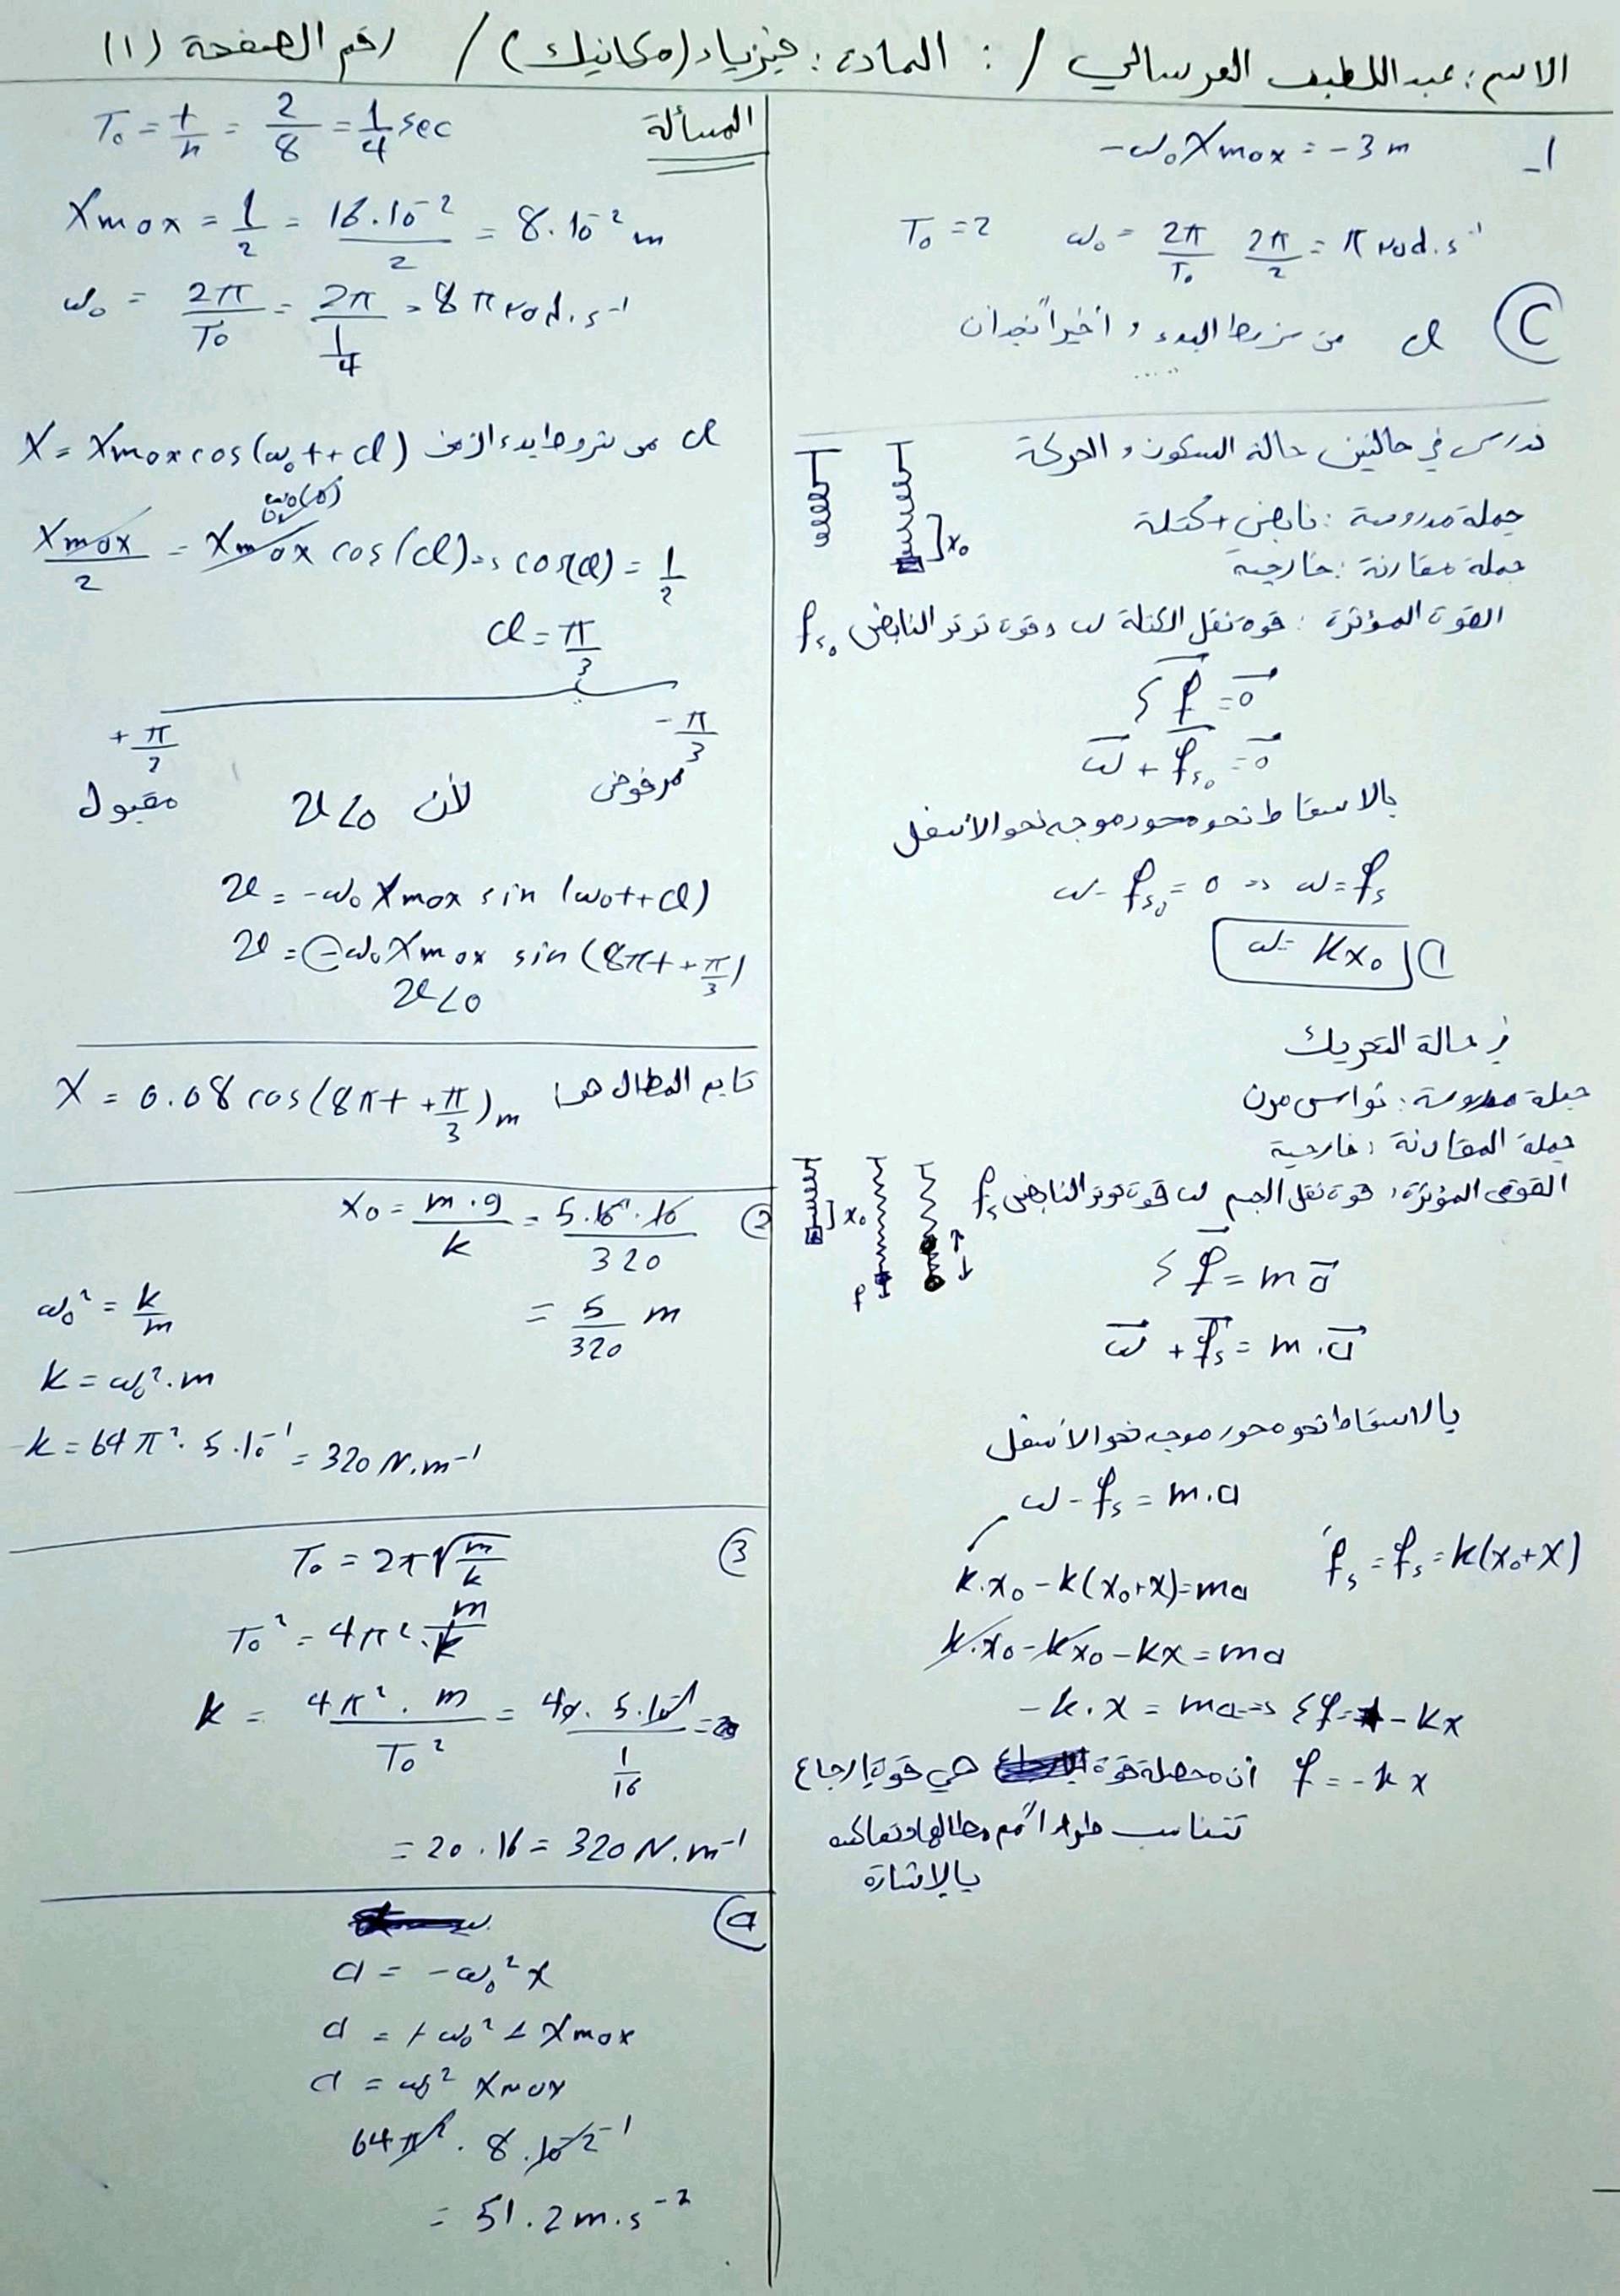 الاسم: عبد اللطيف العرسالي / : المادة: فيزياء (مكانيك) / رقم الصفحة (1)
1- -ω₀Xmax = -3 m
T₀ = 2 ω₀ = 2π/T₀ 2π/2 = π rad.s⁻¹
C φ من شروط البدء و أخيراً نجد ان
.....
ندرس في حالتين حالة السكون و الحركة
جملة مدروسة: نابض + كتلة
x₀
جملة مقارنة: خارجية
القوة المؤثرة: قوة ثقل الكتلة ω وقوة توتر النابض Fs₀
ΣF = 0
ω + Fs₀ = 0
بالاسقاط نحو محور موجه نحو الأسفل
ω - Fs₀ = 0 => ω = Fs
ω = kx₀ (1
في حالة التحريك
جملة مدروسة: نواس مرن
جملة المقارنة: خارجية
القوى المؤثرة: قوة ثقل الجسم ω قوة توتر النابض Fs
x₀
ΣF = ma
ω + Fs = m.a
بالاسقاط نحو محور موجه نحو الأسفل
ω - Fs = m.a
F's = Fs = k(x₀+x)
k.x₀ - k(x₀+x) = ma
k.x₀ - kx₀ - kx = ma
-k.x = ma => ΣF = -kx
F = -kx أن محصلة قوة هي قوة إرجاع
تتناسب طرداً مع مطالها وتعاكسه
بالإشارة
المسألة
T₀ = t/n = 2/8 = 1/4 sec
Xmax = 1/2 = 16.10⁻²/2 = 8.10⁻² m
ω₀ = 2π/T₀ = 2π/(1/4) = 8π rad.s⁻¹
φ من شروط بدء الزمن X = Xmax cos(ω₀t+φ)
ω₀(0)
Xmax/2 = Xmax cos(φ) => cos(φ) = 1/2
φ = π/3
+π/3 -π/3
مقبول لأن v<0 مرفوض
v = -ω₀Xmax sin(ω₀t+φ)
v = -ω₀Xmax sin(8πt+π/3)
v<0
تابع المطال هو: X = 0.08 cos(8πt+π/3) m
(2) x₀ = m.g/k = 5.10⁻¹.10/320
= 5/320 m
ω₀² = k/m
k = ω₀².m
k = 64π². 5.10⁻¹ = 320 N.m⁻¹
(3) T₀ = 2π√(m/k)
T₀² = 4π².m/k
k = 4π².m/T₀² = 40. 5.10⁻¹/(1/16) =
= 20.16 = 320 N.m⁻¹
a = -ω₀²x
a = +ω₀² + Xmax
a = ω₀² Xmax
64π². 8.10⁻²⁻¹
= 51.2 m.s⁻²